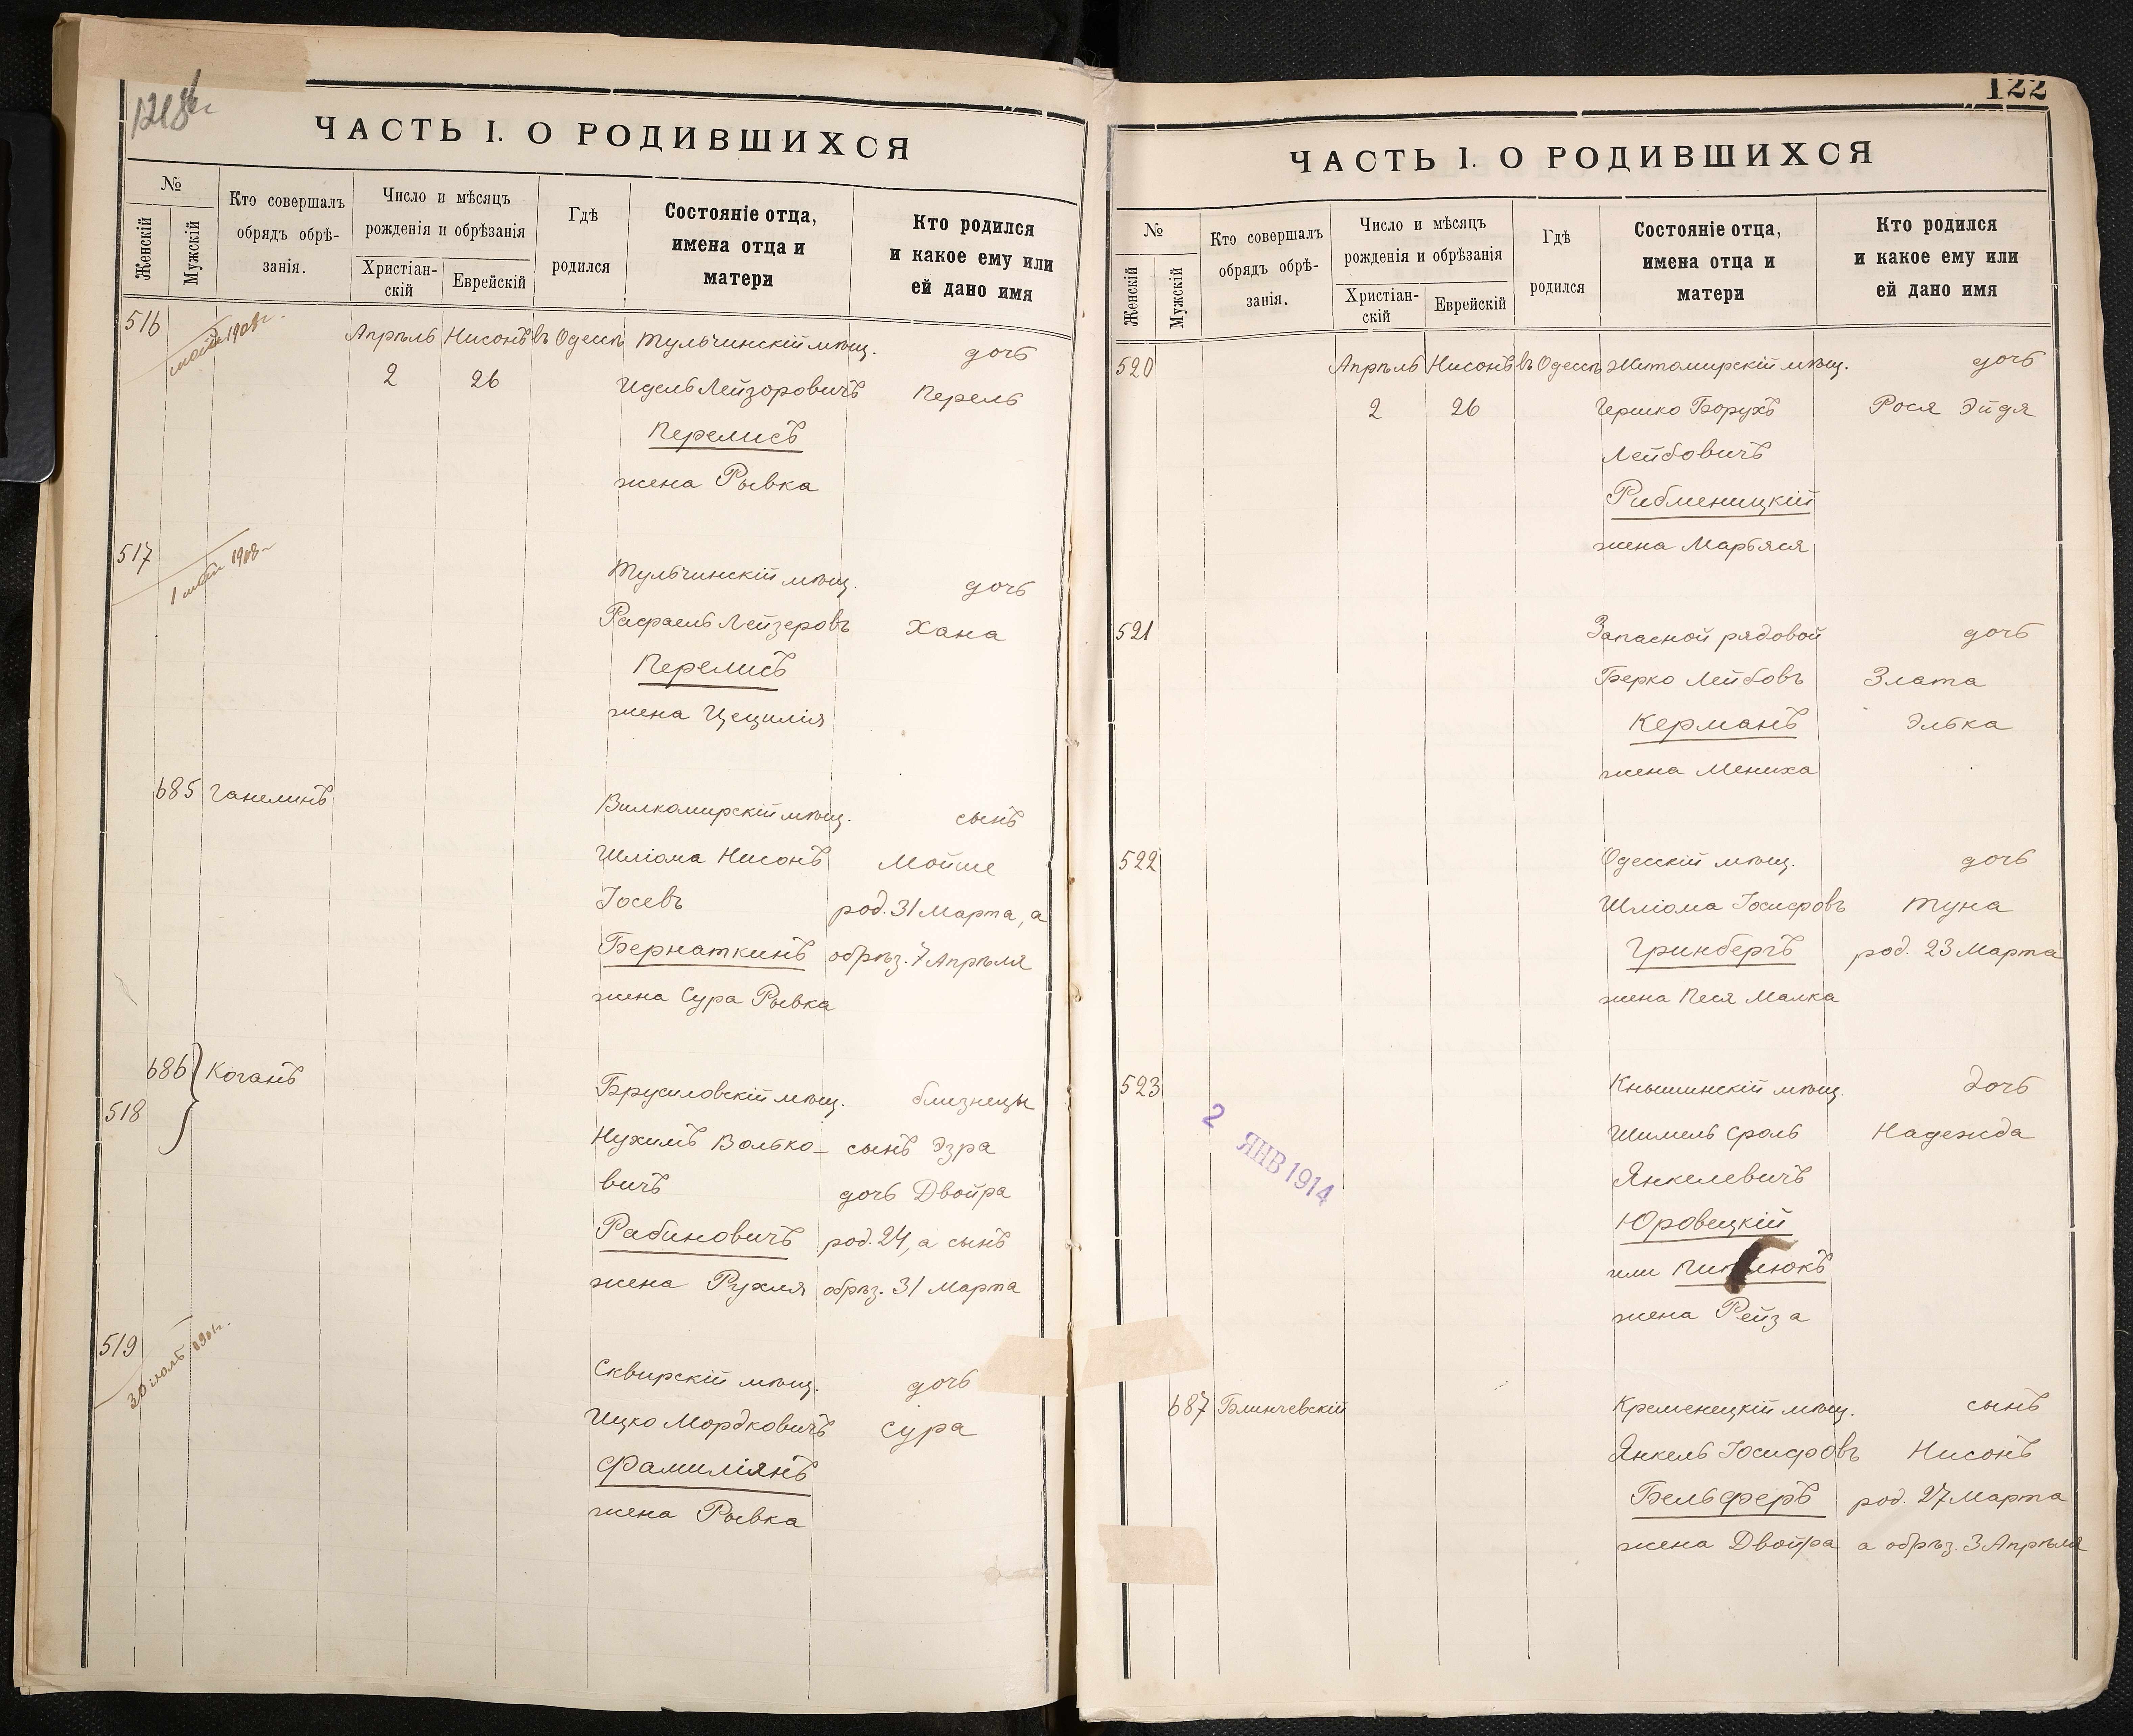 ЧАСТЬ I. О РОДИВШИХСЯ
№
Женскій
Мужскій
Кто совершалъ
обрядъ обрѣ-
занія.
Число и мѣсяцъ
рожденія и обрѣзанія
Христіан-
скій
Еврейскій
Гдѣ
родился
Состояніе отца,
имена отца и
матери
Кто родился
и какое ему или
ей дано имя
516
1908г.
Апрѣль Нисонъ въ Одессѣ Тульчинскій мѣщ. дочь
2 26 Идель Лейзоровичъ Перель
Перелисъ
жена Рывка
517
1 мая 1908г
Тульчинскій мѣщ. дочь
Рафаель Лейзеровъ Хана
Перелисъ
жена Цецилія
685 Ганелинъ Вилкомирскій мѣщ. сынъ
Шліома Нисонъ Мойше
Іосевъ род. 31 Марта, а
Бернаткинъ обрѣз. 7 Апрѣля
жена Сура Рывка
686 Коганъ Брусиловскій мѣщ. близнецы
518
Нухимъ Волько- сынъ Эзра
вичъ дочь Двойра
Рабиновичъ род. 24, а сынъ
жена Рухля обрѣз. 31 Марта
519
30 іюль
Сквирскій мѣщ. дочь
Ицко Мордковичъ Сура
Фамиліянъ
жена Рывка
122
ЧАСТЬ I. О РОДИВШИХСЯ
№
Женскій
Мужскій
Кто совершалъ
обрядъ обрѣ-
занія.
Число и мѣсяцъ
рожденія и обрѣзанія
Христіан-
скій
Еврейскій
Гдѣ
родился
Состояніе отца,
имена отца и
матери
Кто родился
и какое ему или
ей дано имя
520 Апрѣль Нисонъ въ Одессѣ Житомирскій мѣщ. дочь
2 26 Гершко Борухъ Рося Эйдя
Лейбовичъ
Рибменицкій
жена Марьяся
521 Запасной рядовой дочь
Берко Лейбовъ Злата
Керманъ Элька
жена Мениха
522 Одесскій мѣщ. дочь
Шліома Іосифовъ Туна
Гринбергъ род. 23 Марта
жена Песя Малка
523 Кнышинскій мѣщ. дочь
2 ЯНВ 1914
Шимель Сроль Надежда
Янкелевичъ
Юровецкій
или
жена Рейза
687 Блинчевскій Кременецкій мѣщ. сынъ
Янкель Іосифовъ Нисонъ
Бельферъ род. 27 Марта
жена Двойра а обрѣз. 3 Апрѣля